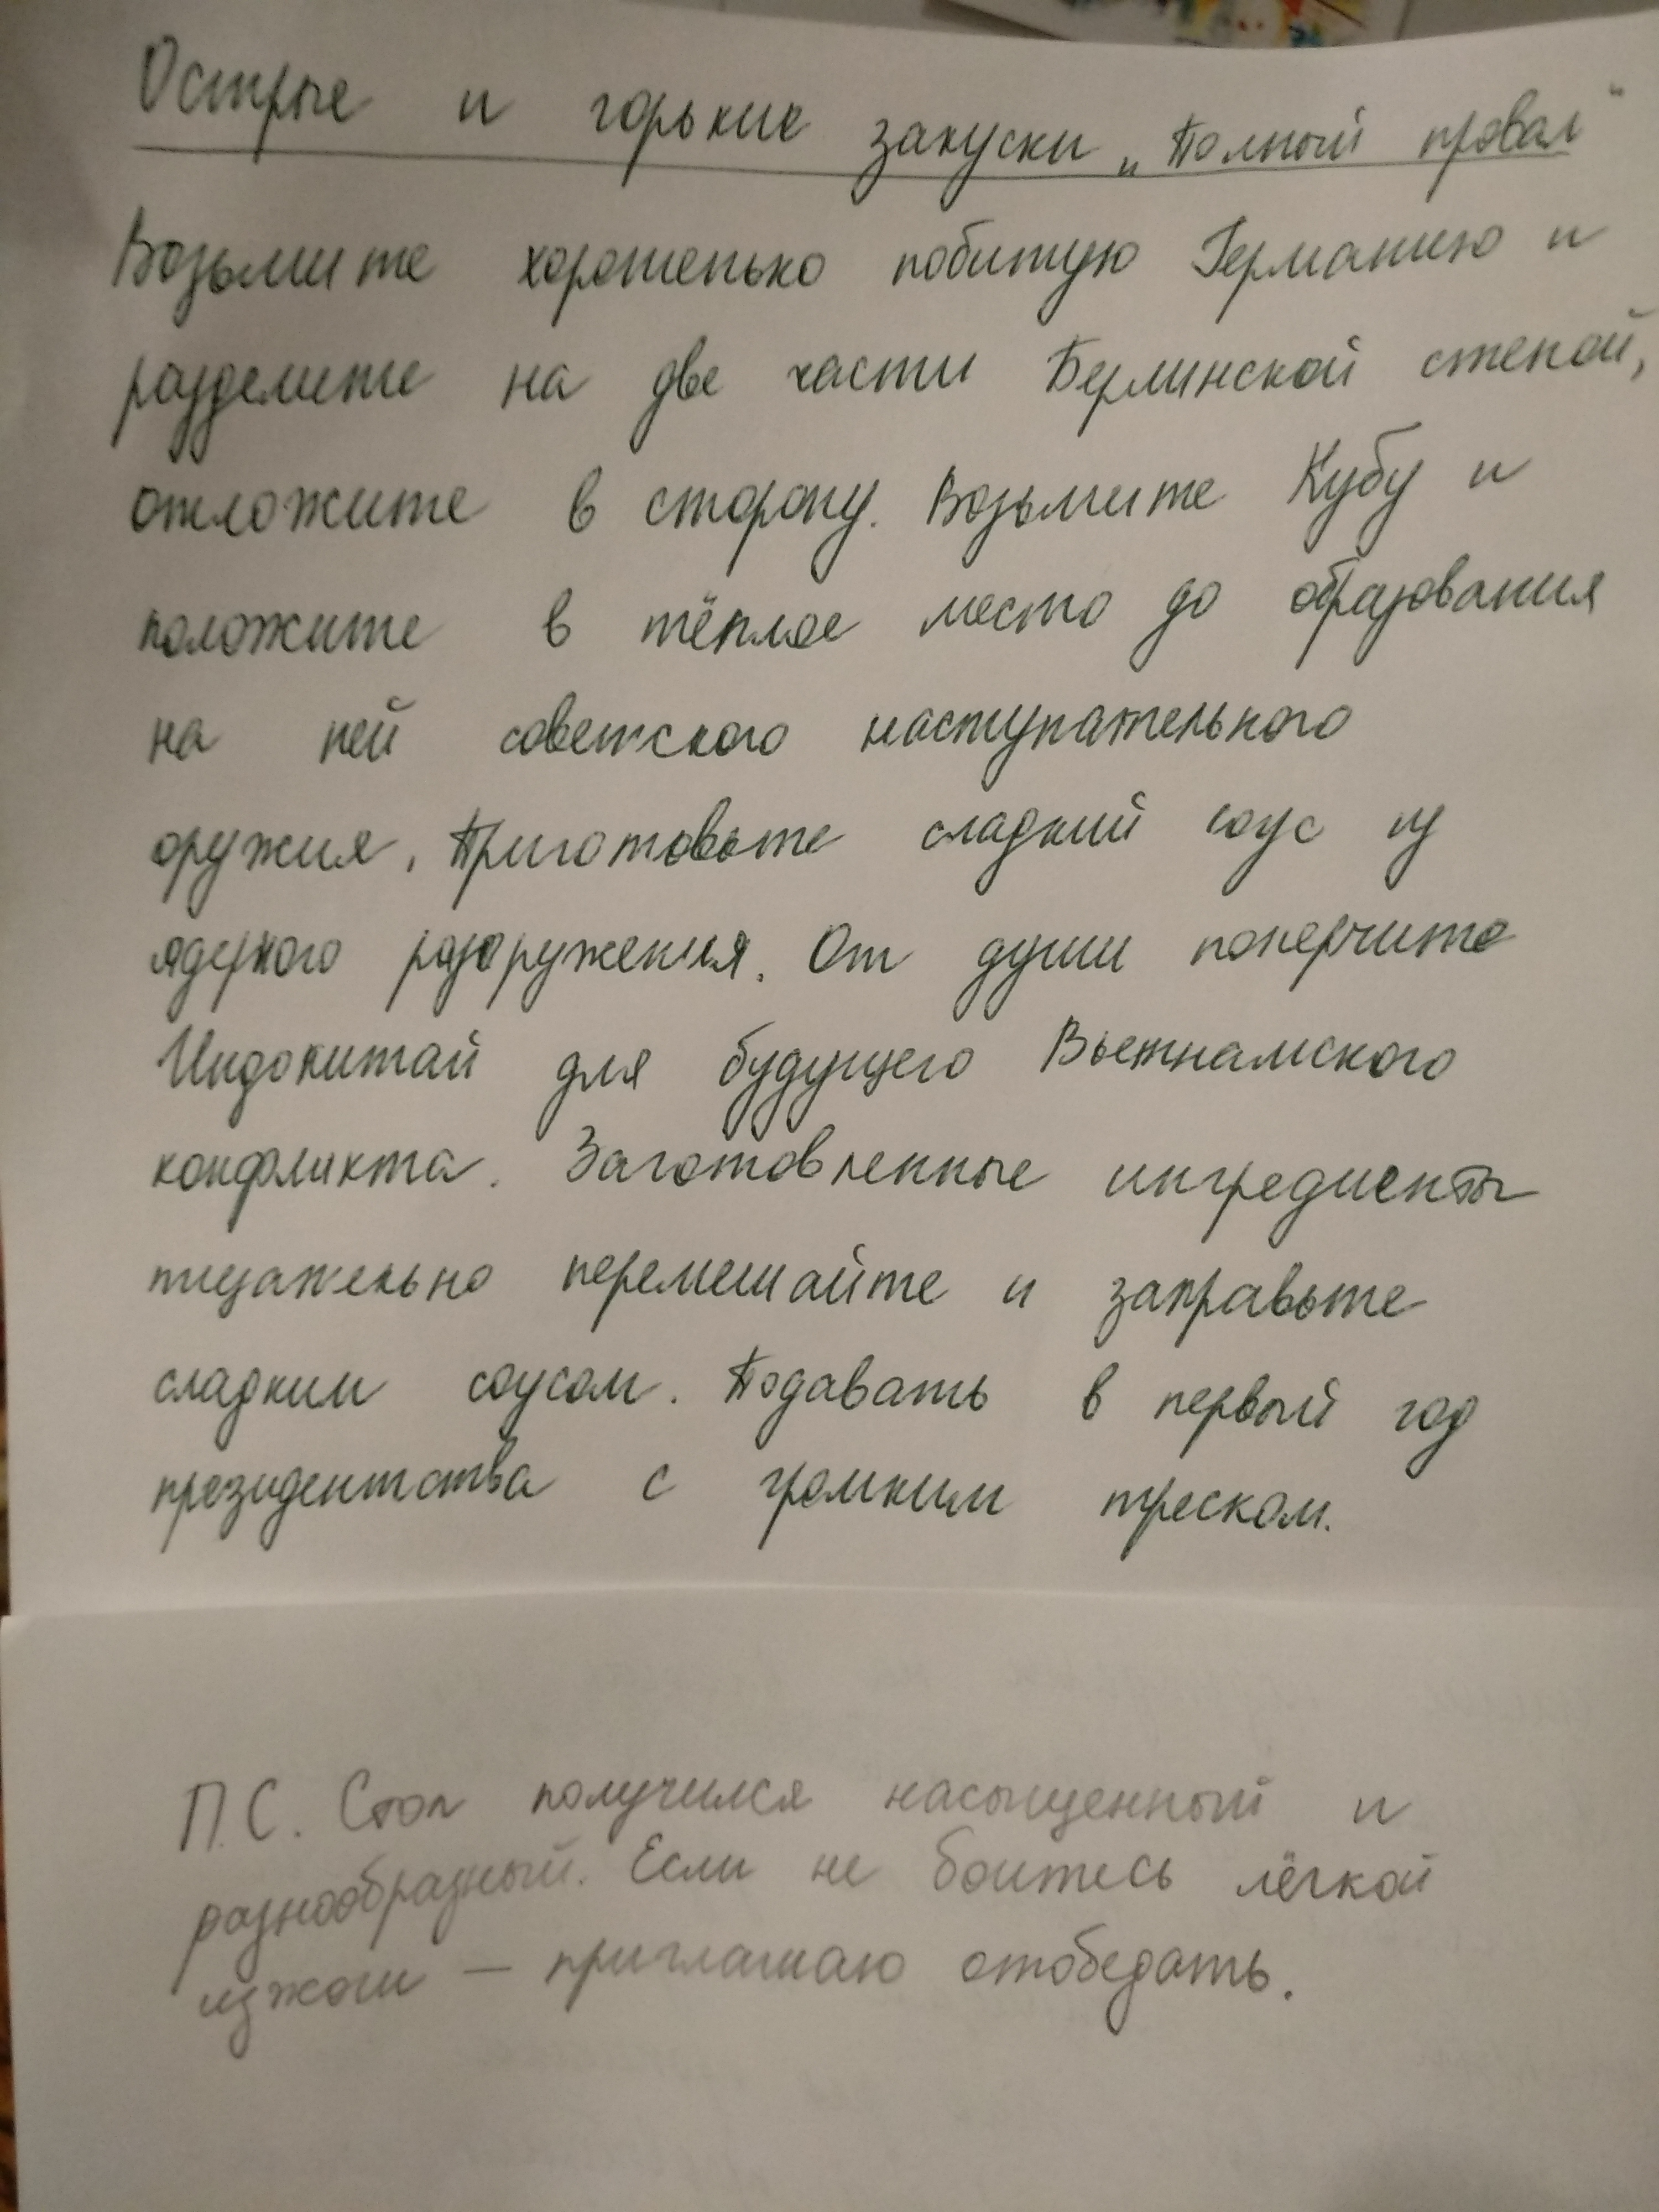 Острые и горькие закуски „Полный провал“
Возьмите хорошенько побитую Германию и
разделите на две части Берлинской стеной,
отложите в сторону. Возьмите Кубу и
положите в тёплое место до образования
на ней советского наступательного
оружия. Приготовьте сладкий соус из
ядерного разоружения. От души поперчите
Индокитай для будущего Вьетнамского
конфликта. Заготовленные ингредиенты
тщательно перемешайте и заправьте
сладким соусом. Подавать в первый год
президентства с громким треском.
П.С. Стол получился насыщенный и
разнообразный. Если не боитесь лёгкой
изжоги — приглашаю отобедать.